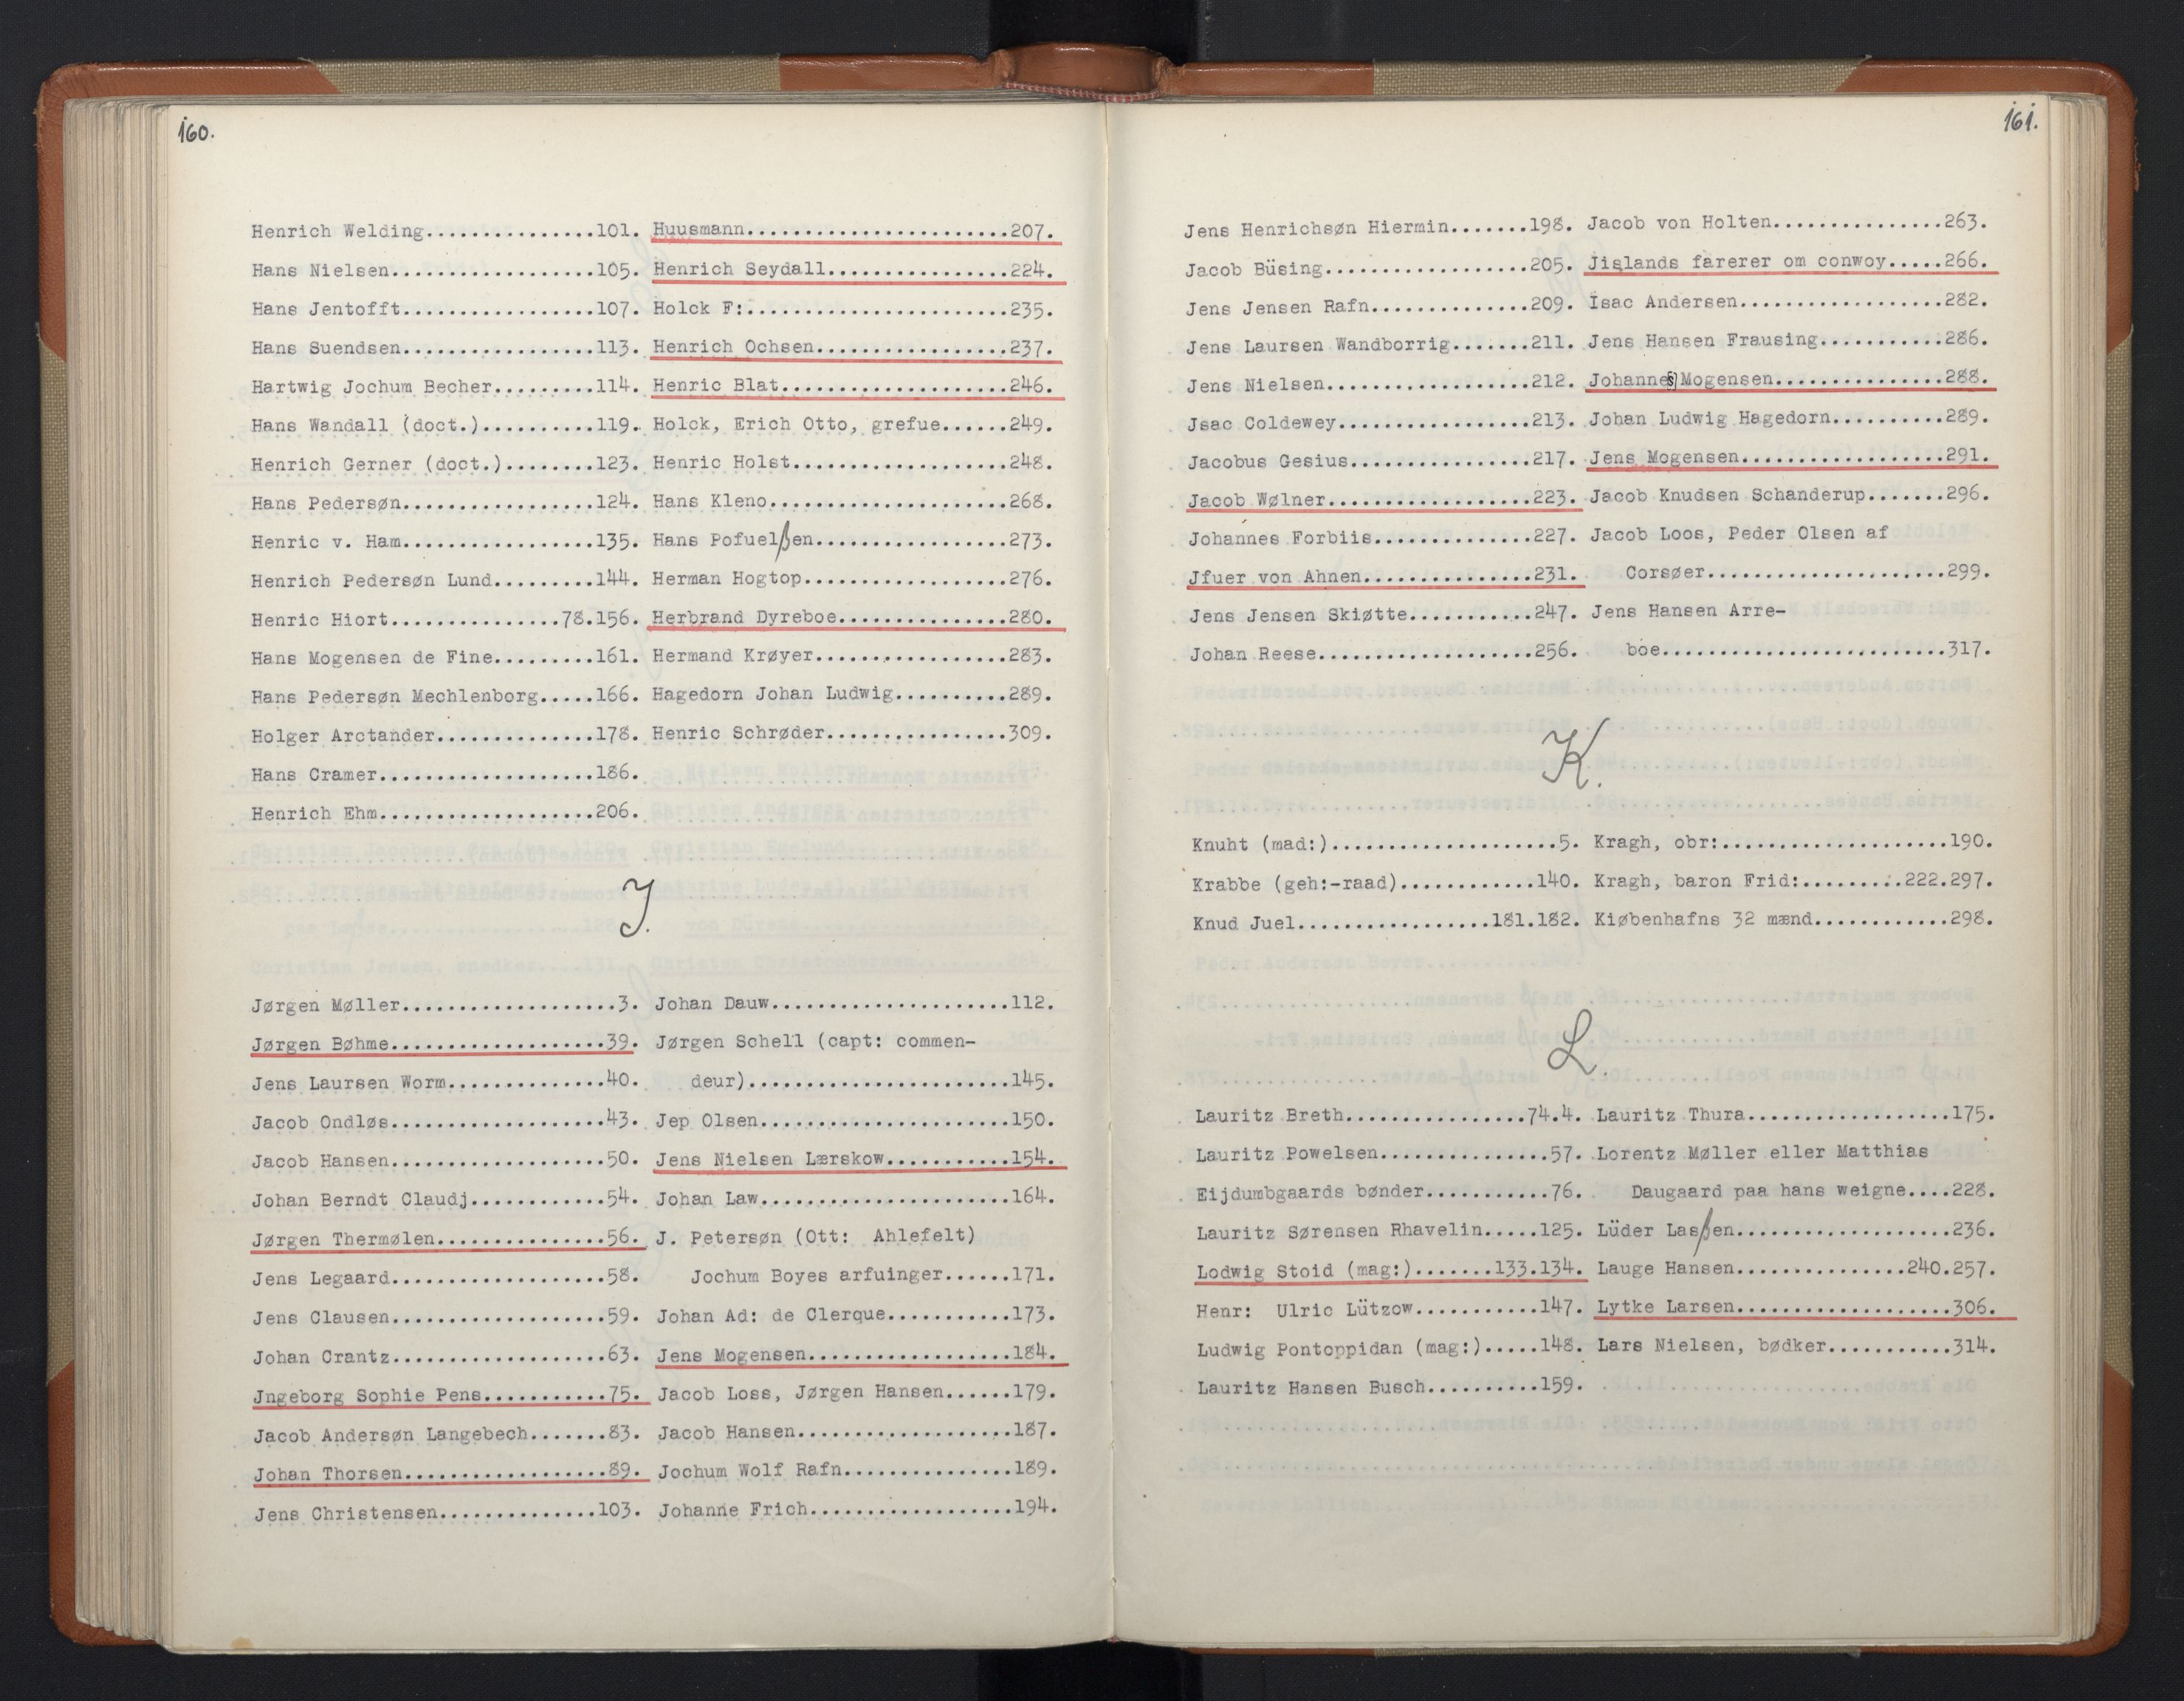 160.
Henrich Welding................101.
Hans Nielsen..................105.
Hans Jentofft.................107.
Hans Suendsen.................113.
Hartwig Jochum Becher.........114.
Hans Wandall (doct.)..........119.
Henrich Gerner (doct.)........123.
Hans Pedersøn.................124.
Henric v. Ham.................135.
Henrich Pedersøn Lund.........144.
Henric Hiort...............78.156.
Hans Mogensen de Fine.........161.
Hans Pedersøn Mechlenborg.....166.
Holger Arctander..............178.
Hans Cramer...................186.
Henrich Ehm...................206.
Huusmann.......................207.
Henrich Seydall................224.
Holck F:.......................235.
Henrich Ochsen.................237.
Henric Blat....................246.
Holck, Erich Otto, grefue......249.
Henric Holst...................248.
Hans Kleno.....................268.
Hans Pofuelßen.................273.
Herman Hogtop..................276.
Herbrand Dyreboe...............280.
Hermand Krøyer.................283.
Hagedorn Johan Ludwig..........289.
Henric Schrøder................309.
J.
Jørgen Møller...................3.
Jørgen Bøhme...................39.
Jens Laursen Worm..............40.
Jacob Ondløs...................43.
Jacob Hansen...................50.
Johan Berndt Claudj............54.
Jørgen Thermølen...............56.
Jens Legaard...................58.
Jens Clausen...................59.
Johan Crantz...................63.
Jngeborg Sophie Pens...........75.
Jacob Andersøn Langebech.......83.
Johan Thorsen..................89.
Jens Christensen..............103.
Johan Dauw.....................112.
Jørgen Schell (capt: commen-
deur).......................145.
Jep Olsen......................150.
Jens Nielsen Lærskow...........154.
Johan Law......................164.
J. Petersøn (Ott: Ahlefelt)
Jochum Boyes arfuinger......171.
Johan Ad: de Clerque...........173.
Jens Mogensen..................184.
Jacob Loss, Jørgen Hansen......179.
Jacob Hansen...................187.
Jochum Wolf Rafn...............189.
Johanne Frich..................194.
161.
Jens Henrichsøn Hiermin.......198.
Jacob Büsing..................205.
Jens Jensen Rafn..............209.
Jens Laursen Wandborrig.......211.
Jens Nielsen..................212.
Jsac Coldewey.................213.
Jacobus Gesius................217.
Jacob Wølner..................223.
Johannes Forbiis..............227.
Jfuer von Ahnen...............231.
Jens Jensen Skiøtte...........247.
Johan Reese...................256.
Jacob von Holten...............263.
Jislands farerer om conwoy.....266.
Isac Andersen..................282.
Jens Hansen Frausing...........286.
Johannes Mogensen..............288.
Johan Ludwig Hagedorn..........289.
Jens Mogensen..................291.
Jacob Knudsen Schanderup.......296.
Jacob Loos, Peder Olsen af
Corsøer.....................299.
Jens Hansen Arre-
boe.........................317.
K.
Knuht (mad:)....................5.
Krabbe (geh:-raad)............140.
Knud Juel.................181.182.
Kragh, obr:....................190.
Kragh, baron Frid:.........222.297.
Kiøbenhafns 32 mænd............298.
L.
Lauritz Breth................74.4.
Lauritz Powelsen...............57.
Eijdumbgaards bønder...........76.
Lauritz Sørensen Rhavelin.....125.
Lodwig Stoid (mag:).......133.134.
Henr: Ulric Lützow...........147.
Ludwig Pontoppidan (mag:).....148.
Lauritz Hansen Busch..........159.
Lauritz Thura..................175.
Lorentz Møller eller Matthias
Daugaard paa hans weigne....228.
Lüder Lasßen...................236.
Lauge Hansen...............240.257.
Lytke Larsen...................306.
Lars Nielsen, bødker...........314.